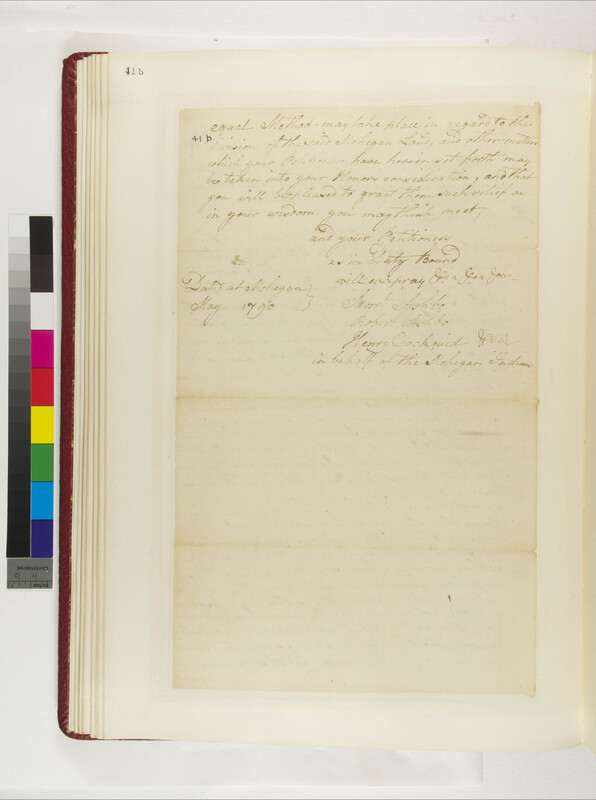 41b
41 b.
equal Method may take place in regard to the
Division of the said Mohegan Land, and other matters
which your Petitioners have herein set forth may
be taken into your Honors consideration, and that
you will be pleased to grant them such relief as
in your wisdom you may think meet,
and your Petitioners
as in Duty Bound
will ever pray &c &c &c
Dated at Mohegan
May 1790
Saml Ashbo
Robert Ashbo
Henry Cochquid &c
in behalf of the Mohegan Indian